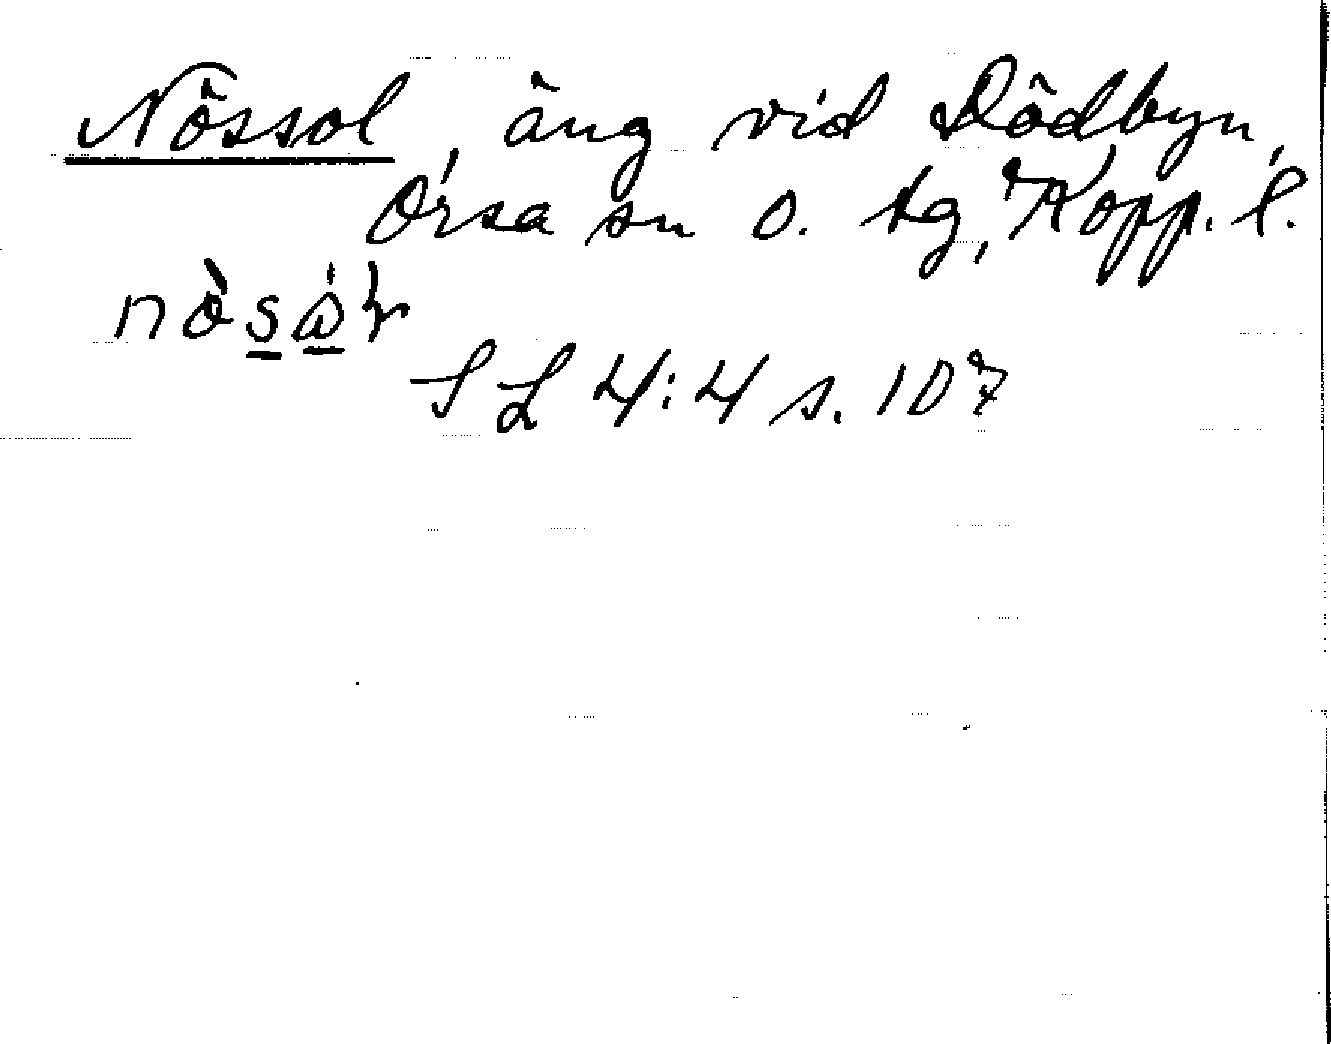 Nössol, äng vid Dödbyn,
Orsa sn o. tg, Kopp. l.
SL 4:4 s. 107